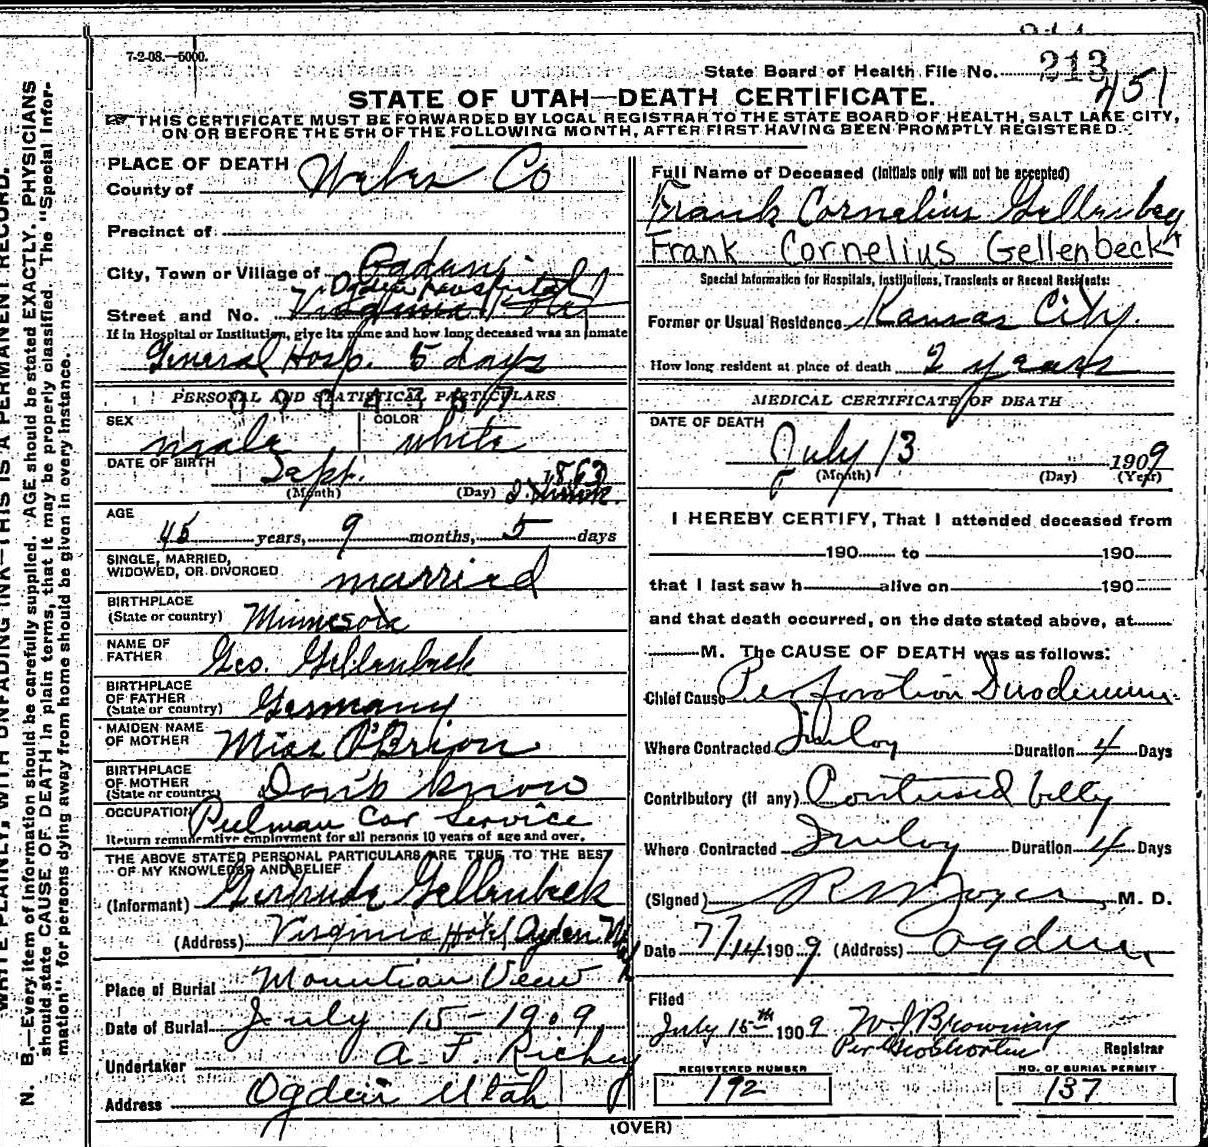 7-2-08.—5000.
State Board of Health File No. 213
451
STATE OF UTAH—DEATH CERTIFICATE.
THIS CERTIFICATE MUST BE FORWARDED BY LOCAL REGISTRAR TO THE STATE BOARD OF HEALTH, SALT LAKE CITY,
ON OR BEFORE THE 5TH OF THE FOLLOWING MONTH, AFTER FIRST HAVING BEEN PROMPTLY REGISTERED.
WRITE PLAINLY, WITH UNFADING INK—THIS IS A PERMANENT RECORD.
N. B.—Every item of information should be carefully supplied. AGE should be stated EXACTLY. PHYSICIANS
should state CAUSE OF DEATH in plain terms, that it may be properly classified. The "Special Infor-
mation" for persons dying away from home should be given in every instance.
PLACE OF DEATH
County of Weber Co
Precinct of
City, Town or Village of Ogden
Ogden Hospital
Street and No. Virginia Hotel
If in Hospital or Institution, give its name and how long deceased was an inmate
General Hosp. 5 days
PERSONAL AND STATISTICAL PARTICULARS
SEX male COLOR white
DATE OF BIRTH Sept. 1863
(Month) (Day)
AGE 45 years, 9 months, 5 days
SINGLE, MARRIED,
WIDOWED, OR DIVORCED married
BIRTHPLACE
(State or country) Minnesota
NAME OF
FATHER Geo. Gellenbeck
BIRTHPLACE
OF FATHER
(State or country) Germany
MAIDEN NAME
OF MOTHER Miss O'Brion
BIRTHPLACE
OF MOTHER
(State or country) Don't know
OCCUPATION Pulman Car Service
Return remunerative employment for all persons 10 years of age and over.
THE ABOVE STATED PERSONAL PARTICULARS ARE TRUE TO THE BEST
OF MY KNOWLEDGE AND BELIEF
(Informant) Gertrude Gellenbeck
(Address) Virginia Hotel Ogden
Place of Burial Mountian View
Date of Burial July 15-1909
Undertaker A. F. Richey
Address Ogden Utah
Full Name of Deceased (Initials only will not be accepted)
Frank Cornelius Gellenbeck
Frank Cornelius Gellenbeck
Special Information for Hospitals, Institutions, Transients or Recent Residents:
Former or Usual Residence Kansas City.
How long resident at place of death 2 years
MEDICAL CERTIFICATE OF DEATH
DATE OF DEATH
July 13 1909
(Month) (Day) (Year)
I HEREBY CERTIFY, That I attended deceased from
190 to 190
that I last saw h alive on 190
and that death occurred, on the date stated above, at
M. The CAUSE OF DEATH was as follows:
Chief Cause Perforation Duodenum
Where Contracted Duration 4 Days
Contributory (if any) Contused belly
Where Contracted Duration 4 Days
(Signed) M. D.
Date 7/14 1909 (Address) Ogden
Filed
July 15th 1909 W J Browning
Per Registrar
REGISTERED NUMBER
192
NO. OF BURIAL PERMIT
137
(OVER)